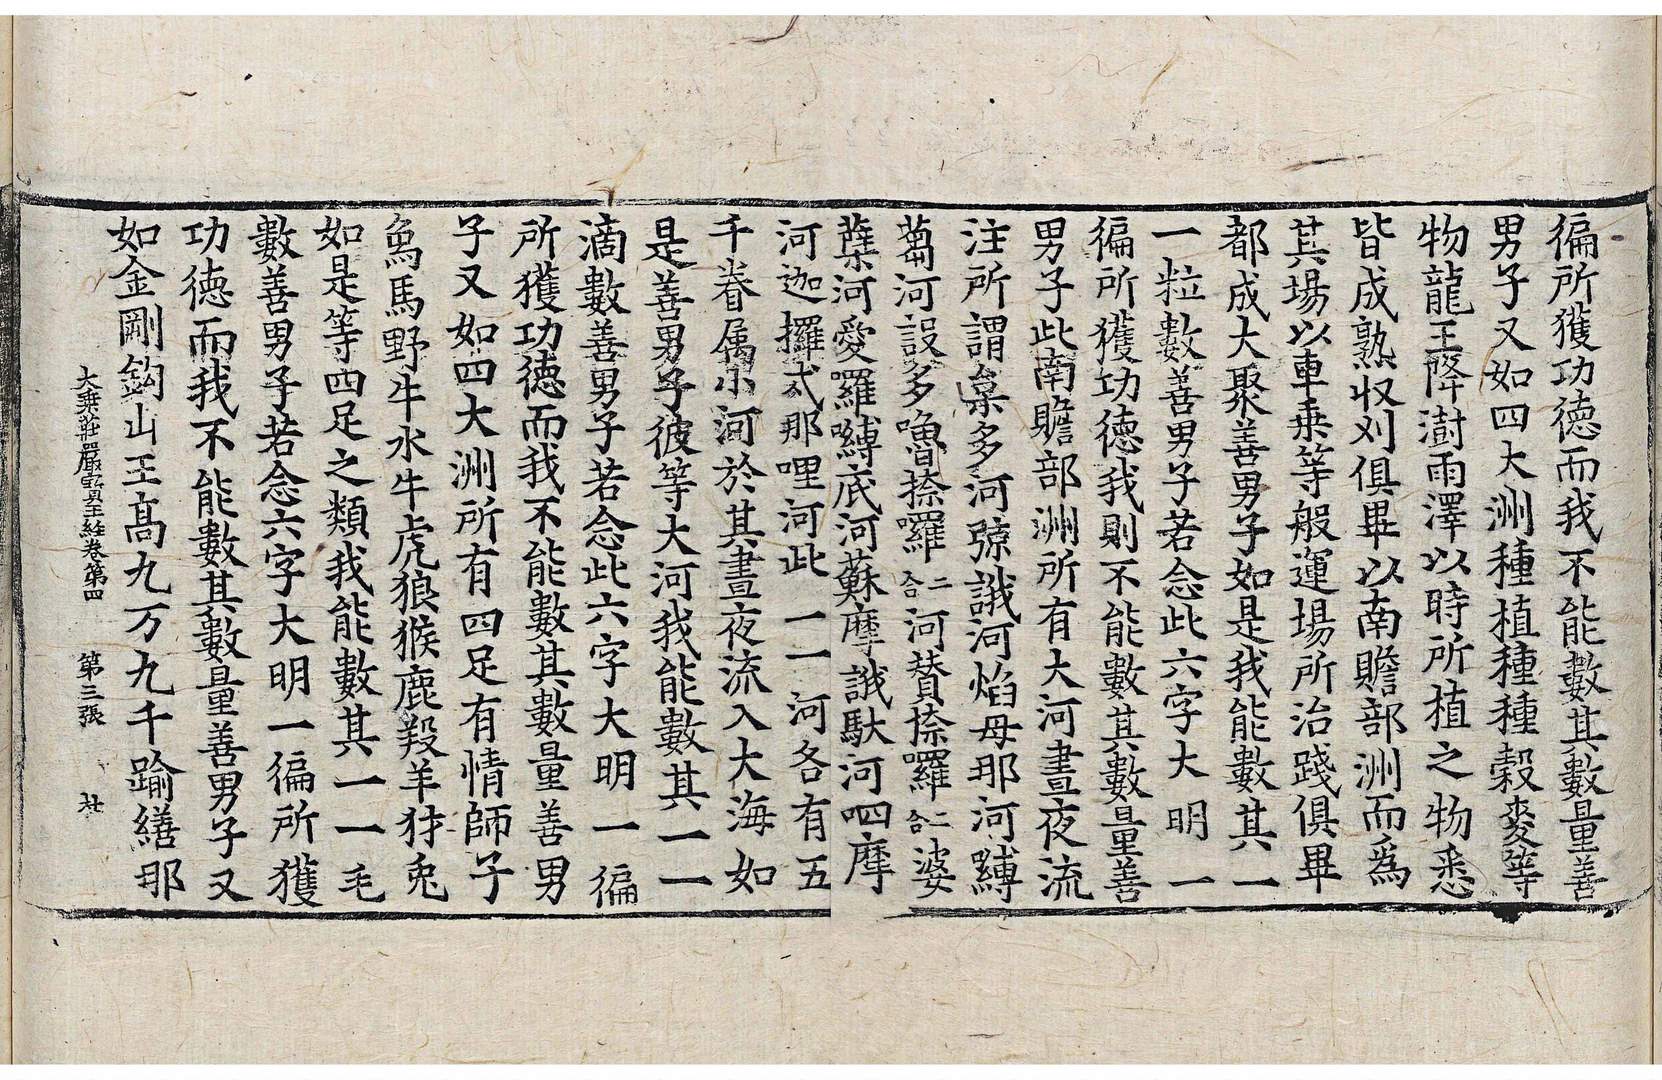 徧所獲功德而我不能數其數量善
男子又如四大洲種植種種穀麥等
物龍王降澍雨澤以時所植之物悉
皆成熟收刈俱畢以南贍部洲而爲
其場以車乗等般運場所治踐俱畢
都成大聚善男子如是我能數其一
一粒數善男子若念此六字大明一
徧所獲功德我則不能數其數量善
男子此南贍部洲所有大河晝夜流
注所謂枲多河弶誐河焰母那河嚩
蒭河設多嚕捺囉二合河賛捺囉二合婆
蘖河愛囉嚩底河蘇摩誐馱河呬摩
河迦攞戍那哩河此一一河各有五
千眷属小河於其晝夜流入大海如
是善男子彼等大河我能數其一一
滴數善男子若念此六字大明一徧
所獲功德而我不能數其數量善男
子又如四大洲所有四足有情師子
象馬野牛水牛虎狼猴鹿羖羊犲兎
如是等四足之類我能數其一一毛
數善男子若念六字大明一徧所獲
功德而我不能數其數量善男子又
如金剛鈎山王髙九万九千踰繕那
大乗莊嚴寳王経卷第四 第三張